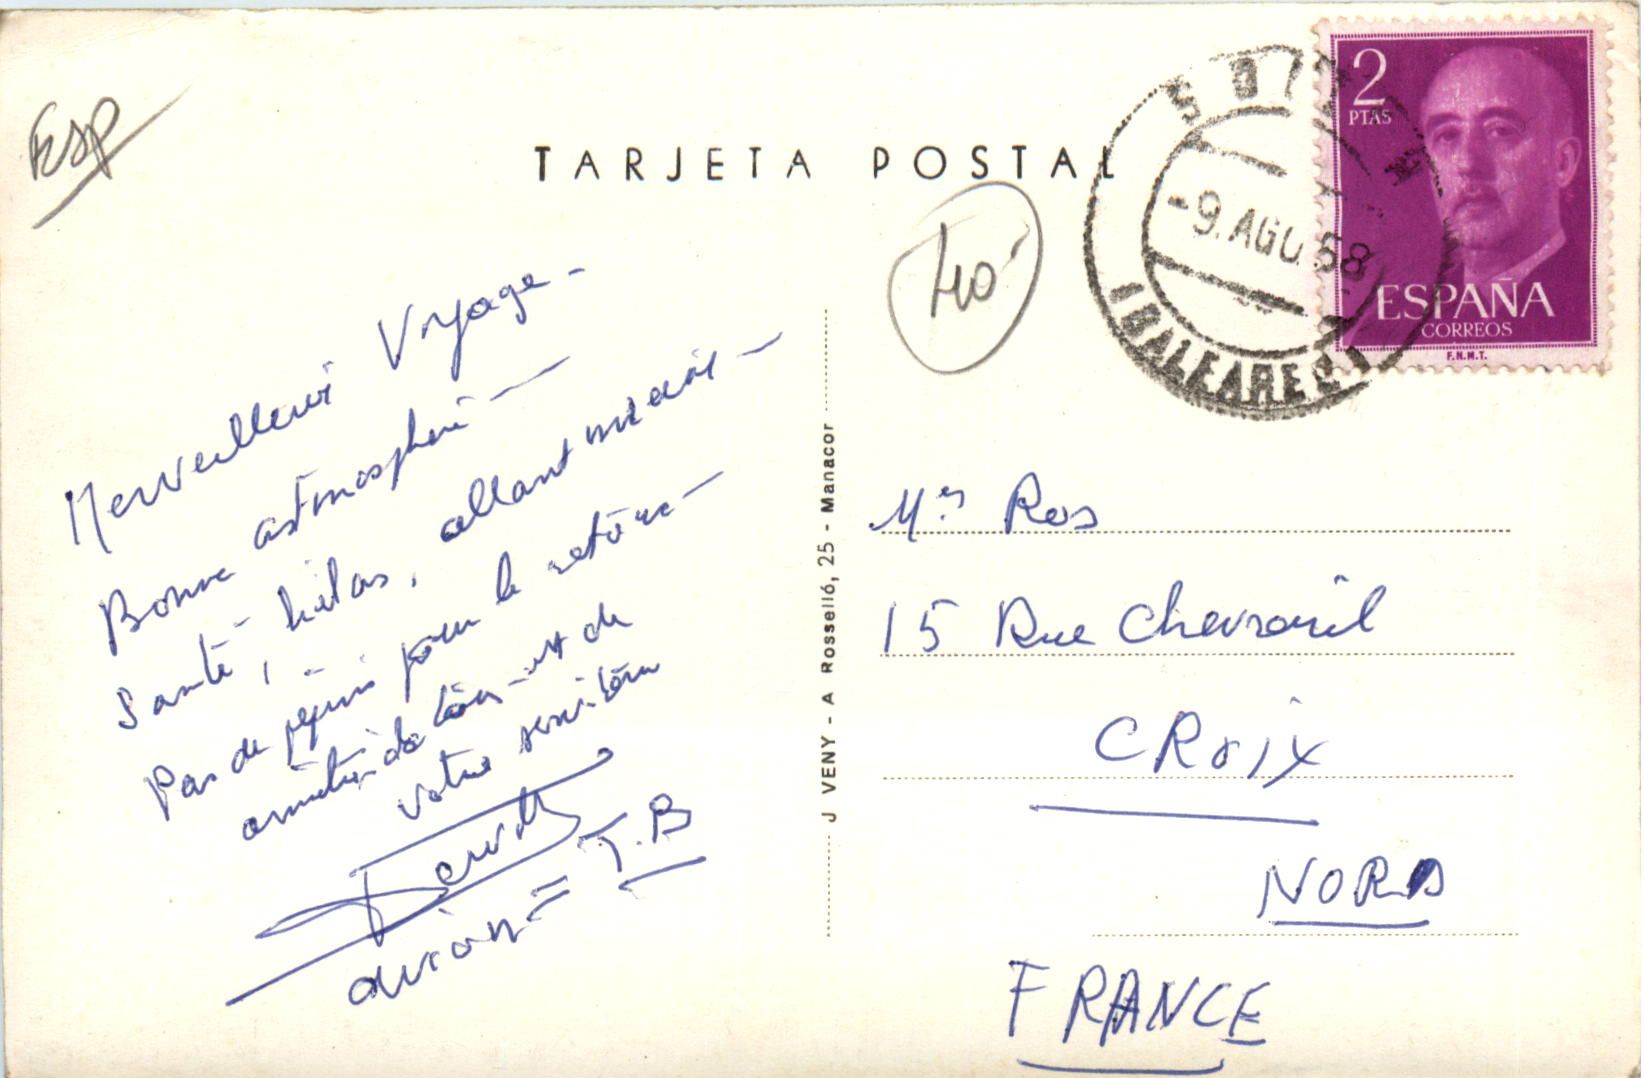 ESP
TARJETA POSTAL
40
2
PTAS
ESPAÑA
CORREOS
F.N.M.T.
-9. AGO 68
(BALEARES)
Merveilleux Voyage -
Bonne astmosphère -
Santé, hélas, allant mieux -
Pas de pépins pour le retour -
amitiés de tous - et de
votre serviteur
avion = T.B
J VENY - A Rosselló, 25 - Manacor
Mrs Ros
15 Rue Chevreuil
CROIX
NORD
FRANCE